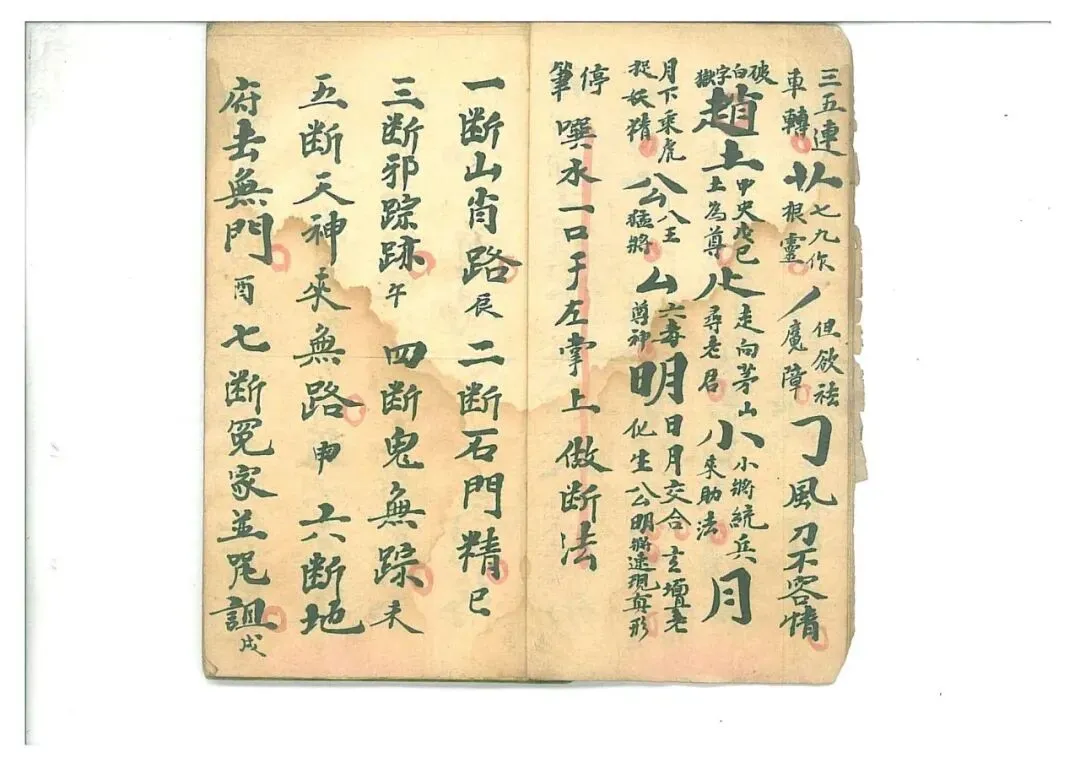 三五連車轉七九作根靈丿但欲祛魔障㇆風刀不容情
破白字獄趙土中央戊己土為尊走向茅山尋老君小小將統兵來助法月
月下乘虎捉妖精公八王猛將厶六毒尊神明日月交合化生公明玄壇老將速現真形
停筆噀水一口于左掌上做断法
一断山肖路辰二断石門精巳
三断邪踪跡午四断鬼無踪未
五断天神來無路申六断地
府去無門酉七断冤家並咒詛戌